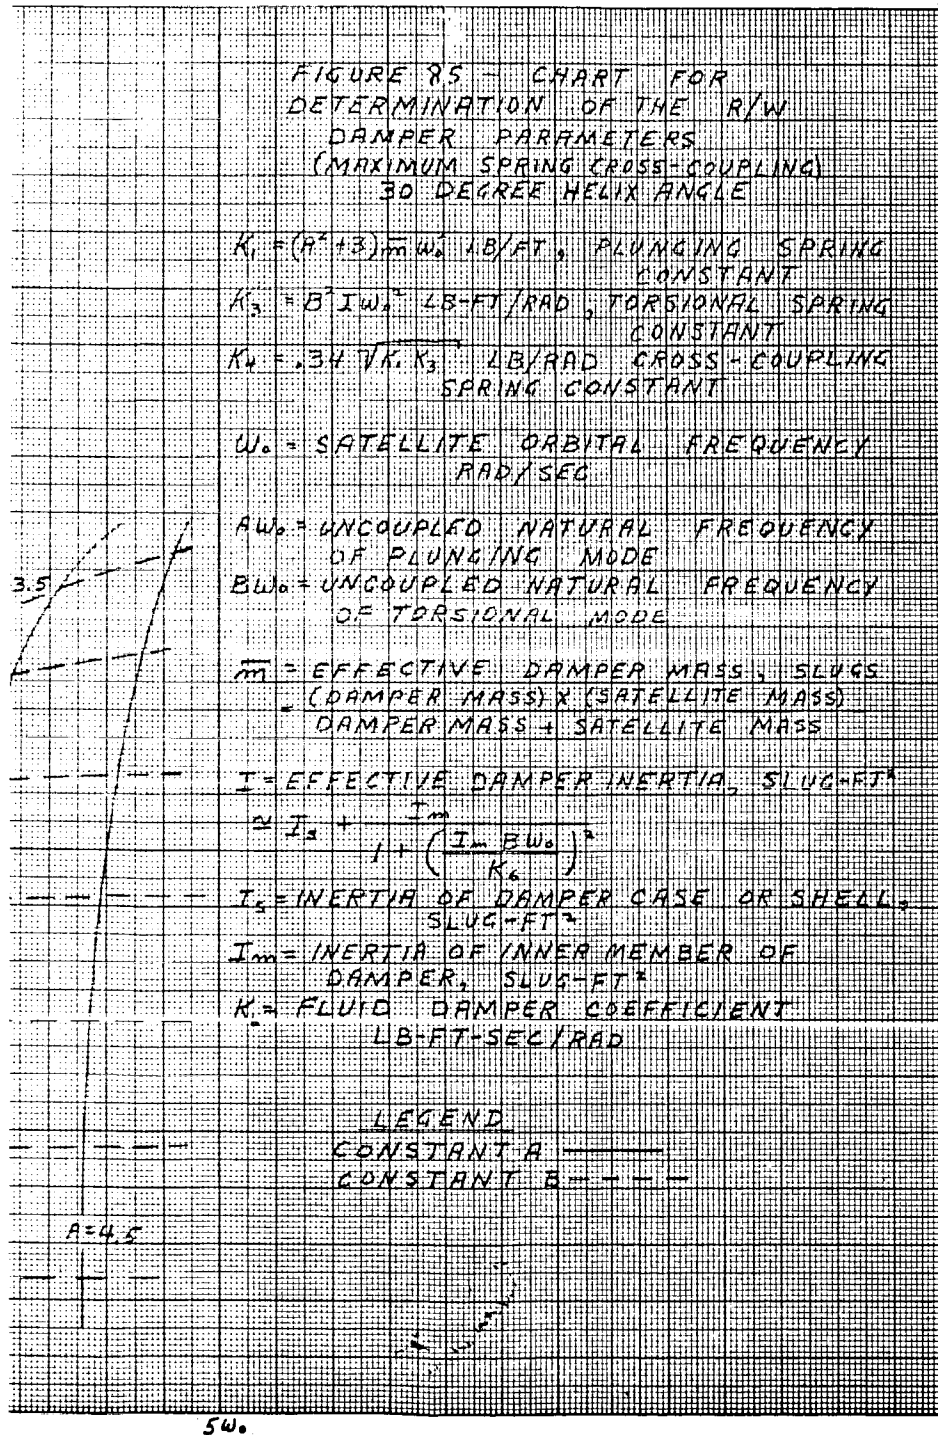 FIGURE 85 - CHART FOR
DETERMINATION OF THE R/W
DAMPER PARAMETERS
(MAXIMUM SPRING CROSS-COUPLING)
30 DEGREE HELIX ANGLE
K₁ = (A² + 3) m̅ W₀² LB/FT, PLUNGING SPRING
CONSTANT
K₃ = B² I W₀² LB-FT/RAD, TORSIONAL SPRING
CONSTANT
K₄ = .34 √K₁ K₃ LB/RAD CROSS-COUPLING
SPRING CONSTANT
W₀ = SATELLITE ORBITAL FREQUENCY
RAD/SEC
AW₀ = UNCOUPLED NATURAL FREQUENCY
OF PLUNGING MODE
3.5
BW₀ = UNCOUPLED NATURAL FREQUENCY
OF TORSIONAL MODE
m̅ = EFFECTIVE DAMPER MASS, SLUGS
= (DAMPER MASS) X (SATELLITE MASS)
DAMPER MASS + SATELLITE MASS
I = EFFECTIVE DAMPER INERTIA, SLUG-FT²
≃ Iₛ + Iₘ
1 + (Iₘ BW₀ / K₆)²
Iₛ = INERTIA OF DAMPER CASE OR SHELL,
SLUG-FT²
Iₘ = INERTIA OF INNER MEMBER OF
DAMPER, SLUG-FT²
K = FLUID DAMPER COEFFICIENT
LB-FT-SEC/RAD
LEGEND
CONSTANT A
CONSTANT B
A=4.5
5W₀